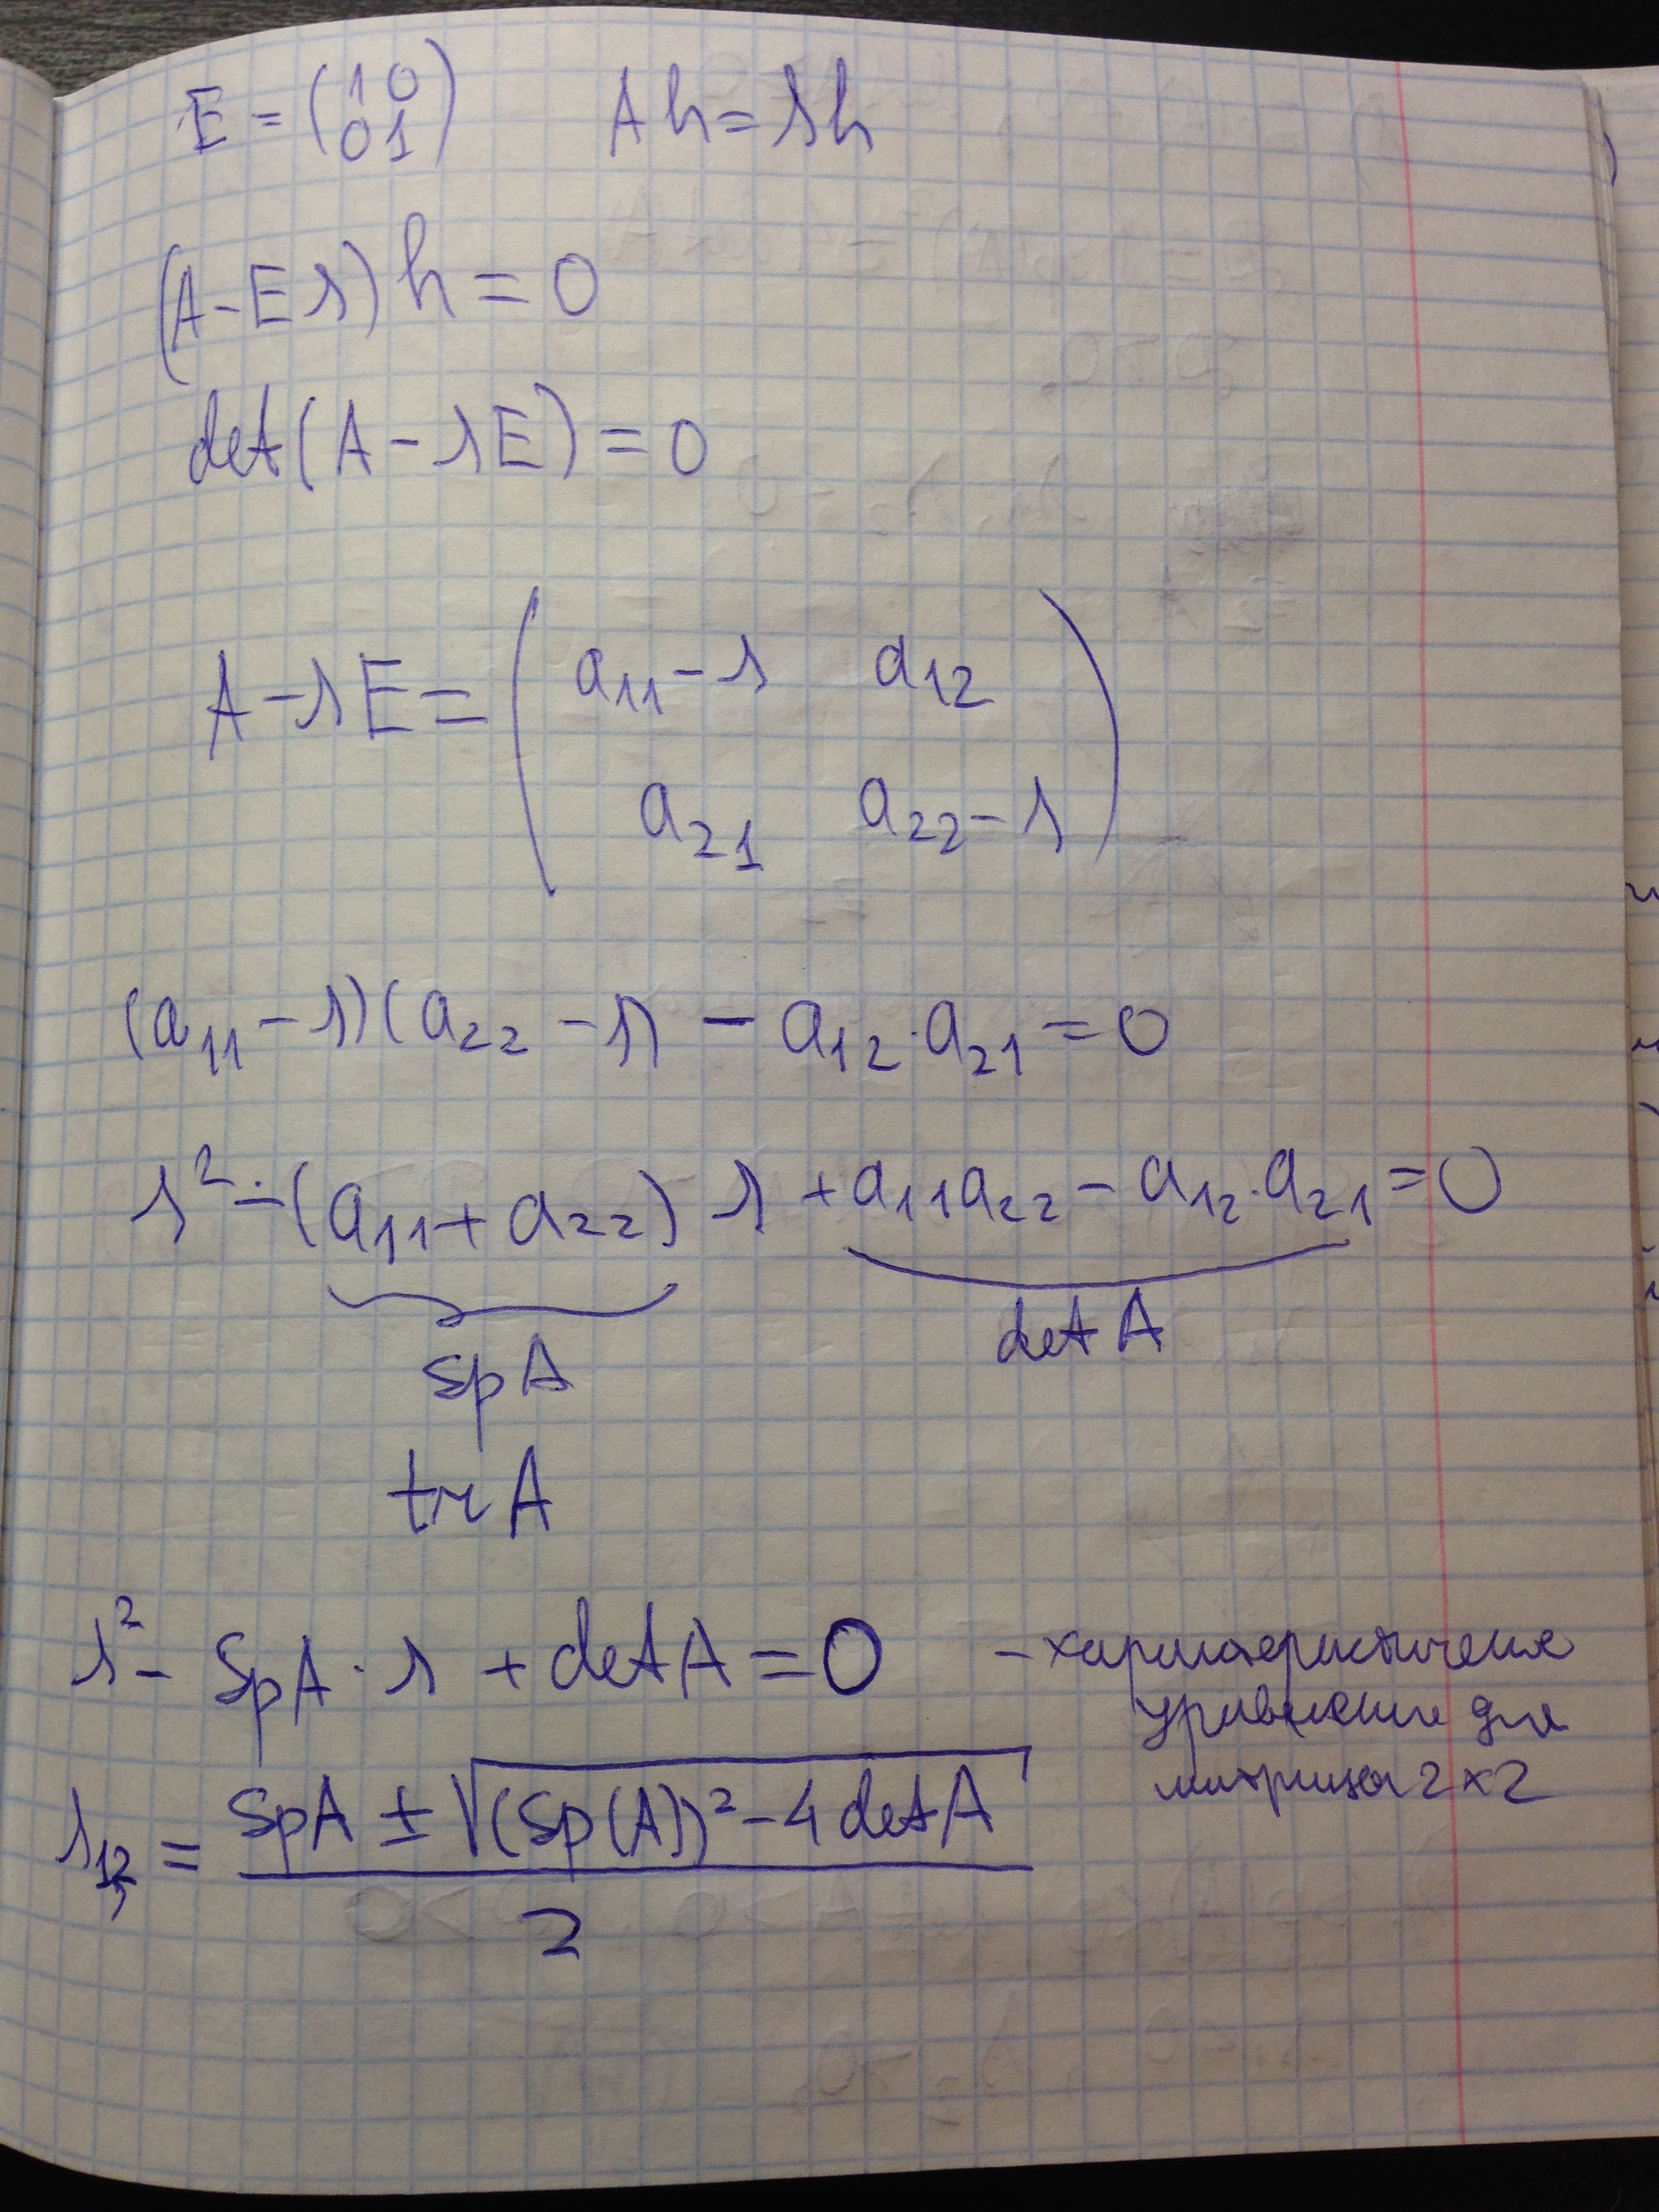 E = (1 0 0 1) Ah = λh
(A - Eλ)h = 0
det(A - λE) = 0
A - λE = (a₁₁ - λ a₁₂
a₂₁ a₂₂ - λ)
(a₁₁ - λ)(a₂₂ - λ) - a₁₂·a₂₁ = 0
λ² - (a₁₁ + a₂₂)λ + a₁₁a₂₂ - a₁₂·a₂₁ = 0
SpA det A
trA
λ² - SpA·λ + detA = 0 - характеристическое
уравнение для
матрицы 2×2
λ₁,₂ = SpA ± √(Sp(A))² - 4detA
2